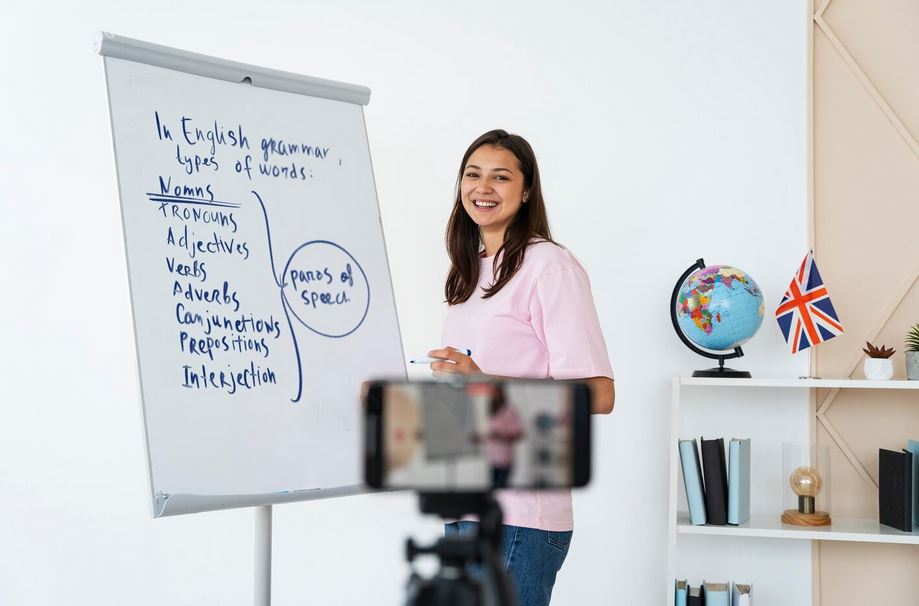 In English grammar,
types of words:
Nomns
PRONOUNS
Adjectives
Verbs
Adverbs
Conjunctions
Prepositions
Interjection
paros of
speech